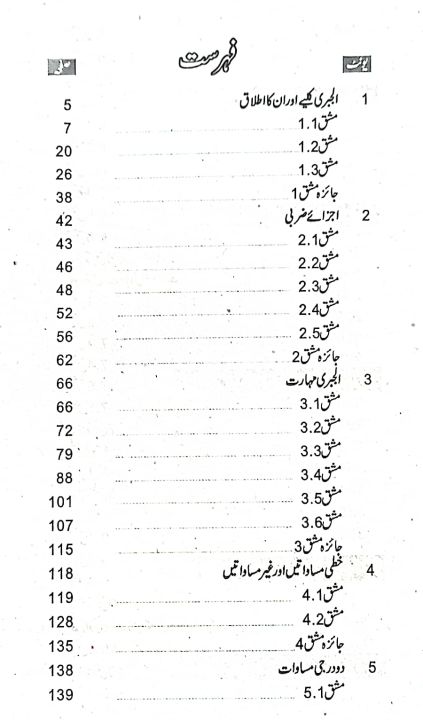 فہرست
یونٹ صفحہ
1 الجبری کلیے اور ان کا اطلاق 5
مشق 1.1 7
مشق 1.2 20
مشق 1.3 26
جائزہ مشق 1 38
2 اجزائے ضربی 42
مشق 2.1 43
مشق 2.2 46
مشق 2.3 48
مشق 2.4 52
مشق 2.5 56
جائزہ مشق 2 62
3 الجبری مہارت 66
مشق 3.1 66
مشق 3.2 72
مشق 3.3 79
مشق 3.4 88
مشق 3.5 101
مشق 3.6 107
جائزہ مشق 3 115
4 خطی مساواتیں اور غیر مساواتیں 118
مشق 4.1 119
مشق 4.2 128
جائزہ مشق 4 135
5 دو درجی مساوات 138
مشق 5.1 139